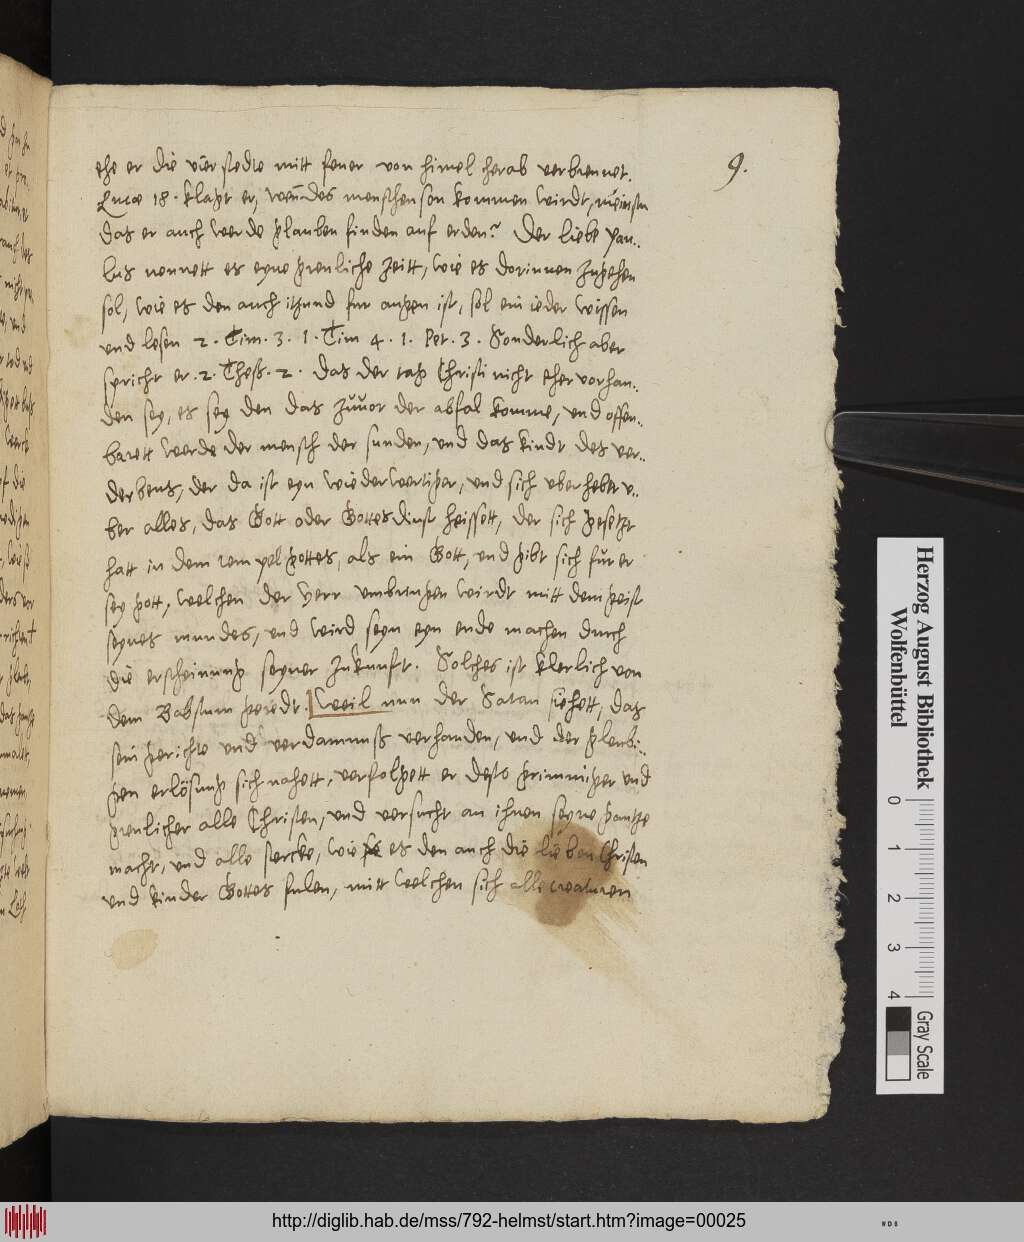 9.
ehe er die vier stedte mitt feuer von himel herab verbrennet.
Lucæ 18. klagt er, wen des menschen son kommen wirdt, meinstu
das er auch werde glauben finden auf erden? Der liebe Pau..
lus nennett es eyne greuliche zeitt, wie es dorinnen zugehen
sol, wie es den auch itzund fur augen ist, sol ein ieder wissen
und lesen 2. Tim. 3. 1. Tim 4. 1. Pet. 3. Sonderlich aber
spricht er .2. Thess. 2. das der tag Christi nicht eher vorhan..
den sey, es sey den das zuvor der abfal komme, und offen..
barett werde der mensch der sunden, und das kindt des ver..
derbens, der da ist eyn wiederwertiger, und sich uberhebt u..
ber alles, das Gott oder Gottesdinst heissett, der sich gesetzt
hatt in dem tempel gottes, als ein Gott, und gibt sich fur er
sey gott, welchen der herr umbringen wirdt mitt dem geist
seynes mundes, und wird seyn eyn ende machen durch
die erscheinung seyner zukunft. Solches ist klerlich von
dem Babstum geredt. Weil nun der Satan siehett, das
sein gerichte und verdamnuss verhanden, und der gleubi..
gen erlösung sich nahett, verfolgett er desto grimmiger und
greulicher alle Christen, und versucht an ihnen seyne gantze
macht, und alle stercke, wie es den auch die lieben Christen
und kinder Gottes fulen, mitt welchen sich alle creaturen
Herzog August Bibliothek
Wolfenbüttel
0 1 2 3 4
Gray Scale
http://diglib.hab.de/mss/792-helmst/start.htm?image=00025